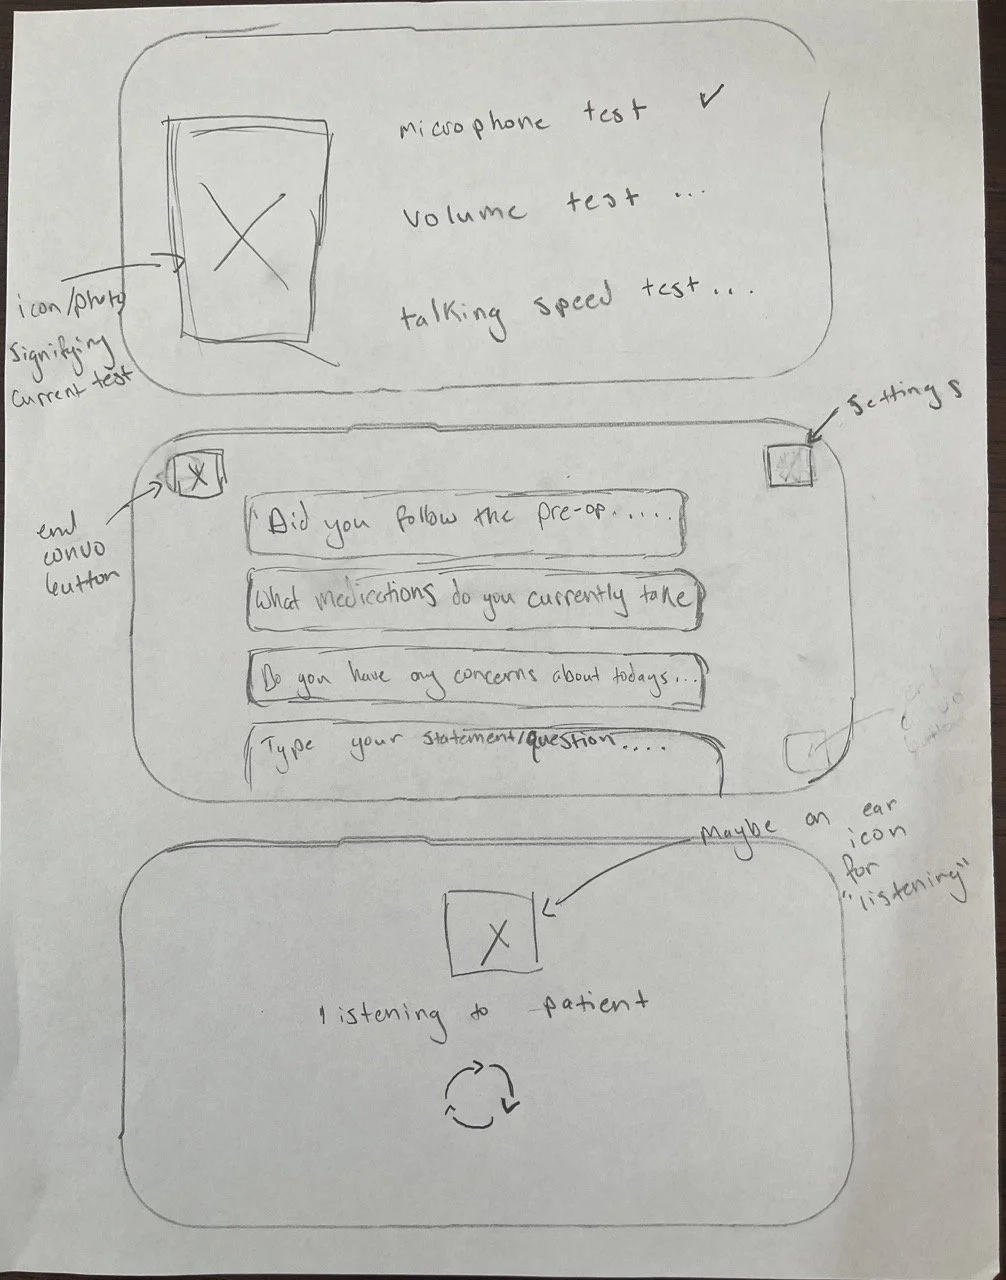 microphone test ✓
volume test ...
talking speed test ...
icon/photo
signifying
current test
settings
end
convo
button
Did you follow the pre-op.....
What medications do you currently take
Do you have any concerns about todays...
Type your statement/question....
Maybe an ear
icon
for
"listening"
listening to patient